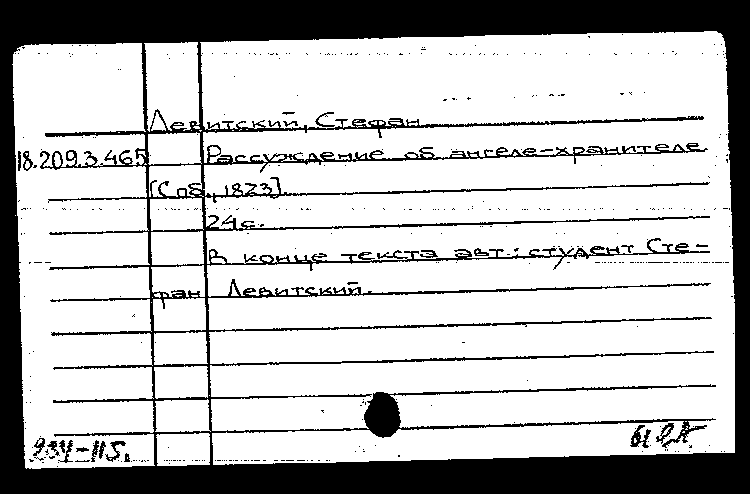 Левитский, Стефан
18.209.3.465 Рассуждение об ангеле-хранителе
[Спб., 1823].
24с.
В конце текста авт.: студент Сте-
фан Левитский.
234-115.